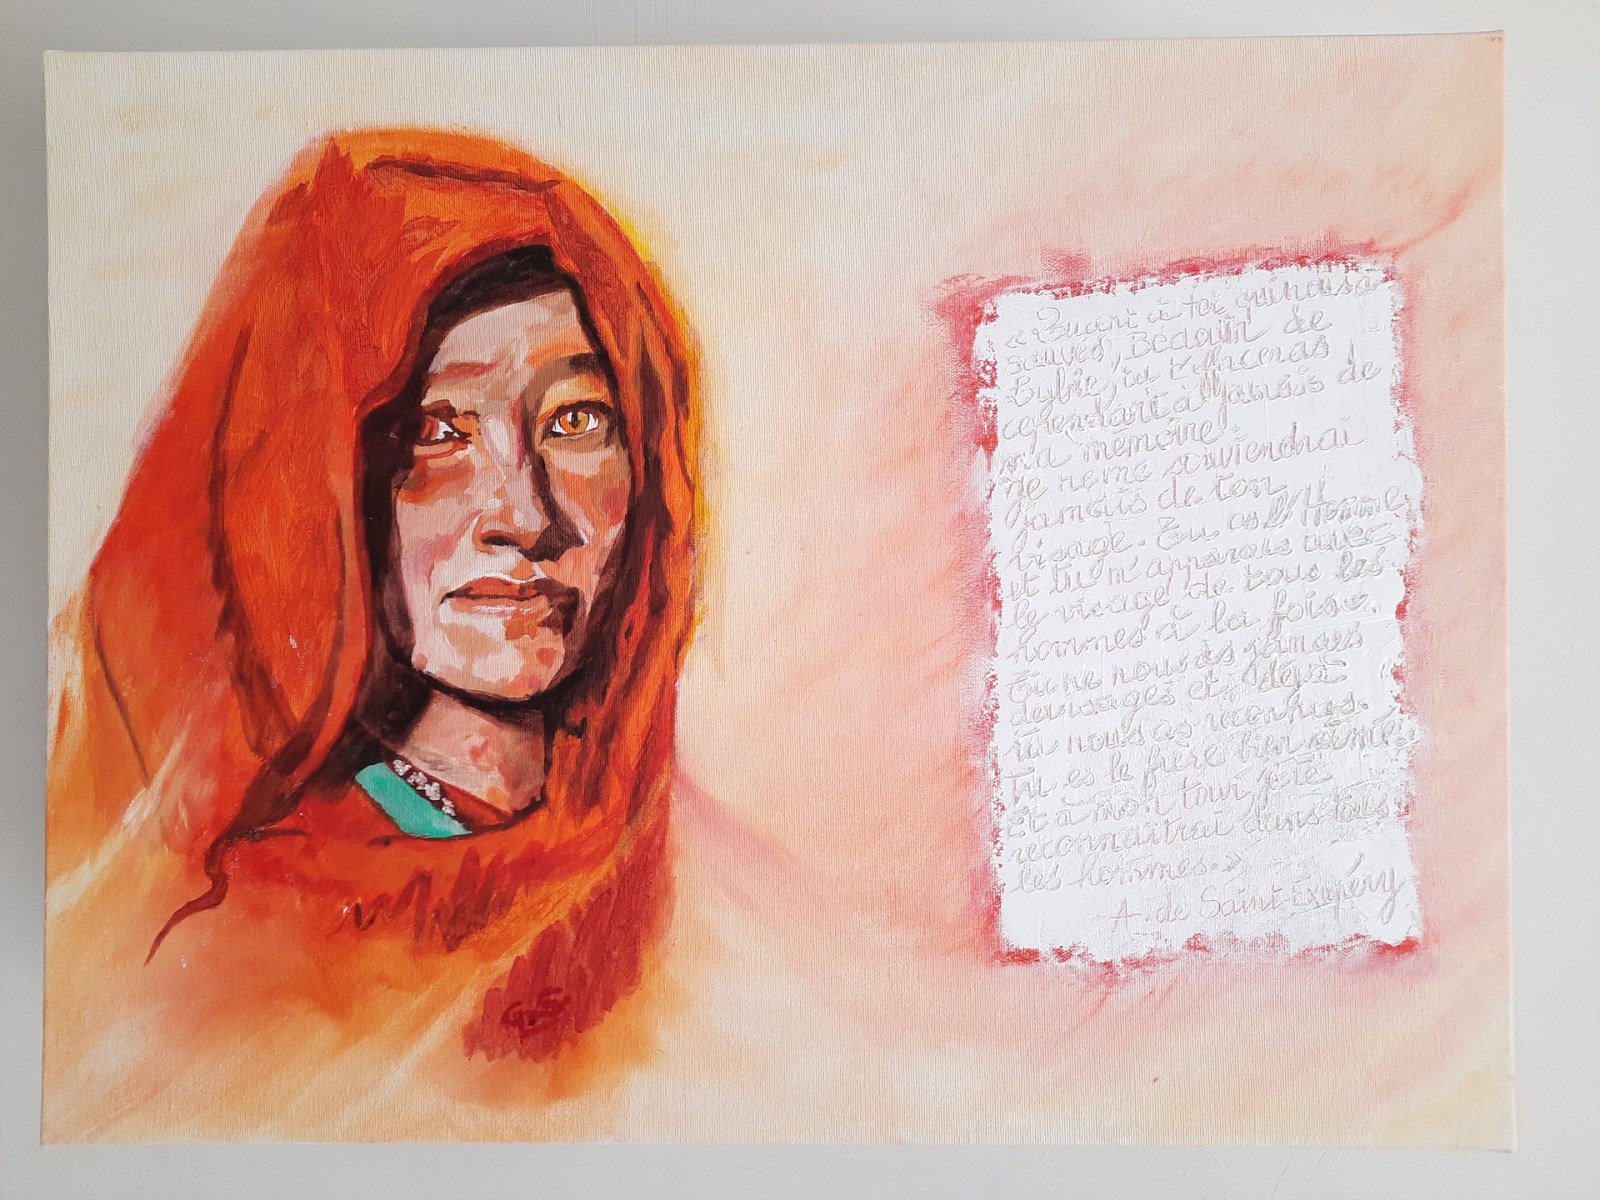 « Quant à toi qui nous
sauves, Bédouin de
Lybie, tu t'effaceras
cependant à jamais de
ma mémoire.
Je ne me souviendrai
jamais de ton
visage. Tu es l'Homme
et tu m'apparais avec
le visage de tous les
hommes à la fois.
Tu ne nous as jamais
dévisagés et déjà
tu nous as reconnus.
Tu es le frère bien aimé.
Et à mon tour, je te
reconnaîtrai dans tous
les hommes. »
A. de Saint-Exupéry
G.S.